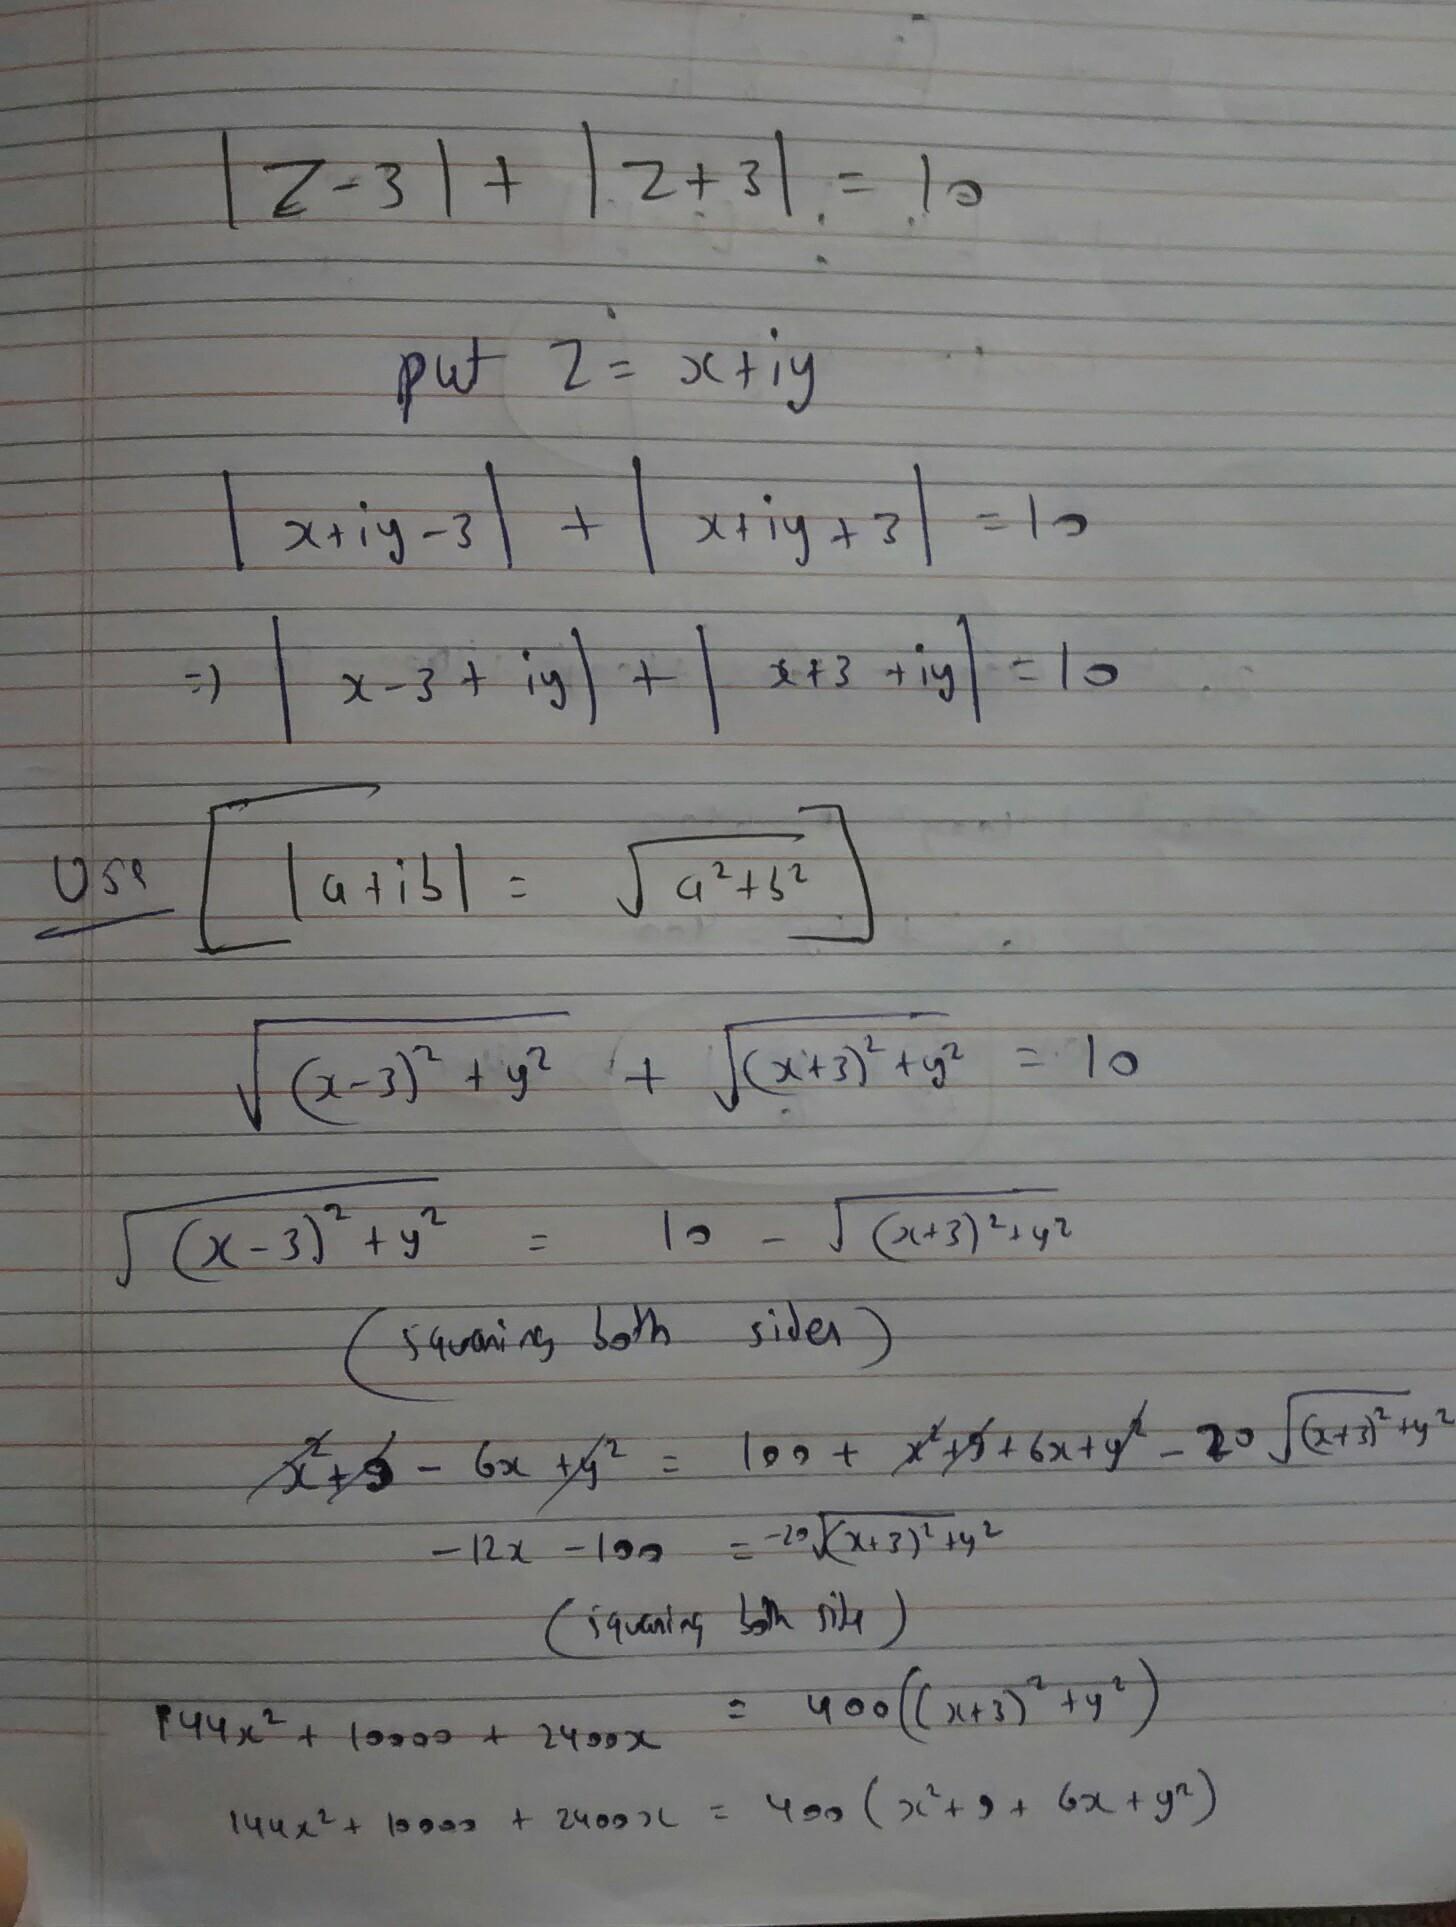 |Z-3| + |Z+3| = 10
put Z = x+iy
|x+iy-3| + |x+iy+3| = 10
=) |x-3+iy| + |x+3+iy| = 10
Use [|a+ib| = √(a²+b²)]
√((x-3)²+y²) + √((x+3)²+y²) = 10
√((x-3)²+y²) = 10 - √((x+3)²+y²)
(squaring both sides)
x²+9-6x+y² = 100+x²+9+6x+y²-20√((x+3)²+y²)
-12x-100 = -20√((x+3)²+y²)
(squaring both side)
144x²+10000+2400x = 400((x+3)²+y²)
144x²+10000+2400x = 400(x²+9+6x+y²)